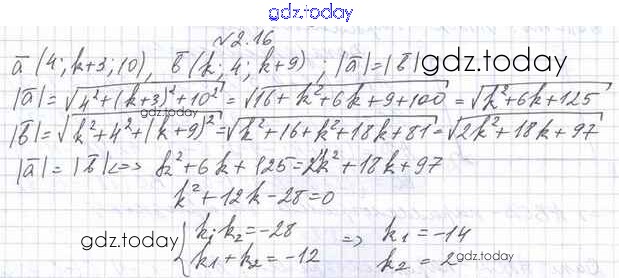 gdz.today
№2.16
a̅ (4; k+3; 10), b̅ (k; 4; k+9) ; |a̅|=|b̅| gdz.today
|a̅|=√(4²+(k+3)²+10²)=√(16+k²+6k+9+100)=√(k²+6k+125)
gdz.today
|b̅|=√(k²+4²+(k+9)²)=√(k²+16+k²+18k+81)=√(2k²+18k+97)
|a̅|=|b̅|<=> k²+6k+125=2k²+18k+97
k²+12k-28=0
gdz.today { k₁·k₂=-28 => k₁=-14
k₁+k₂=-12 k₂=2 gdz.today